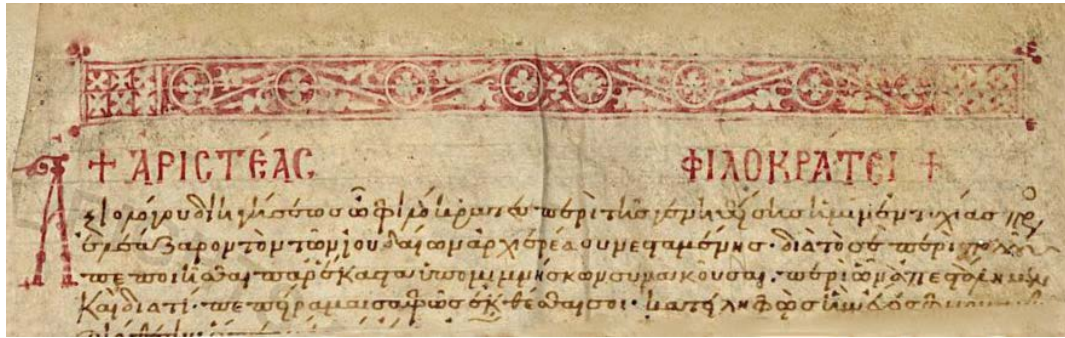 + ἈΡΙСΤΈΑС ΦΙΛΟΚΡΆΤΕΙ +
Ἀξιολόγου διηγήσεως ὦ φιλόκρατες περὶ τῆς γενηθείσης ἡμῖν ἐντυχίας πρὸς
ἐλεάζαρον τὸν τῶν ἰουδαίων ἀρχιερέα συνεσταμένης · διὰ τὸ σὲ περὶ πολλοῦ
πεποιῆσθαι παρ' ἕκαστα ὑπομιμνήσκων συνακοῦσαι · περὶ ὧν ἀπεστάλημεν
καὶ διατί · πεπείραμαι σαφῶς ἐκθέσθαι σοι · κατειληφὼς ἣν ἔχεις